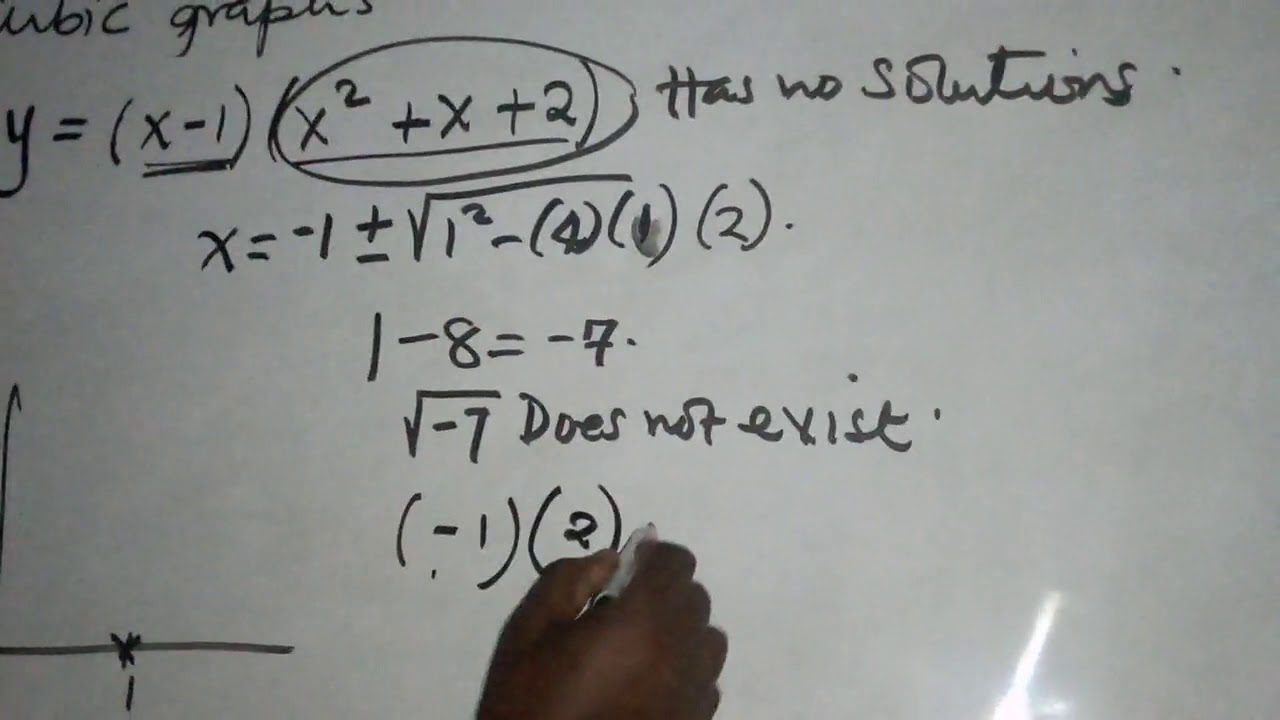 ubic graphs
y = (x-1)(x² + x + 2) Has no solutions.
x = -1 ± √1² - (4)(1)(2).
1 - 8 = -7.
√-7 Does not exist.
(-1)(2)
1